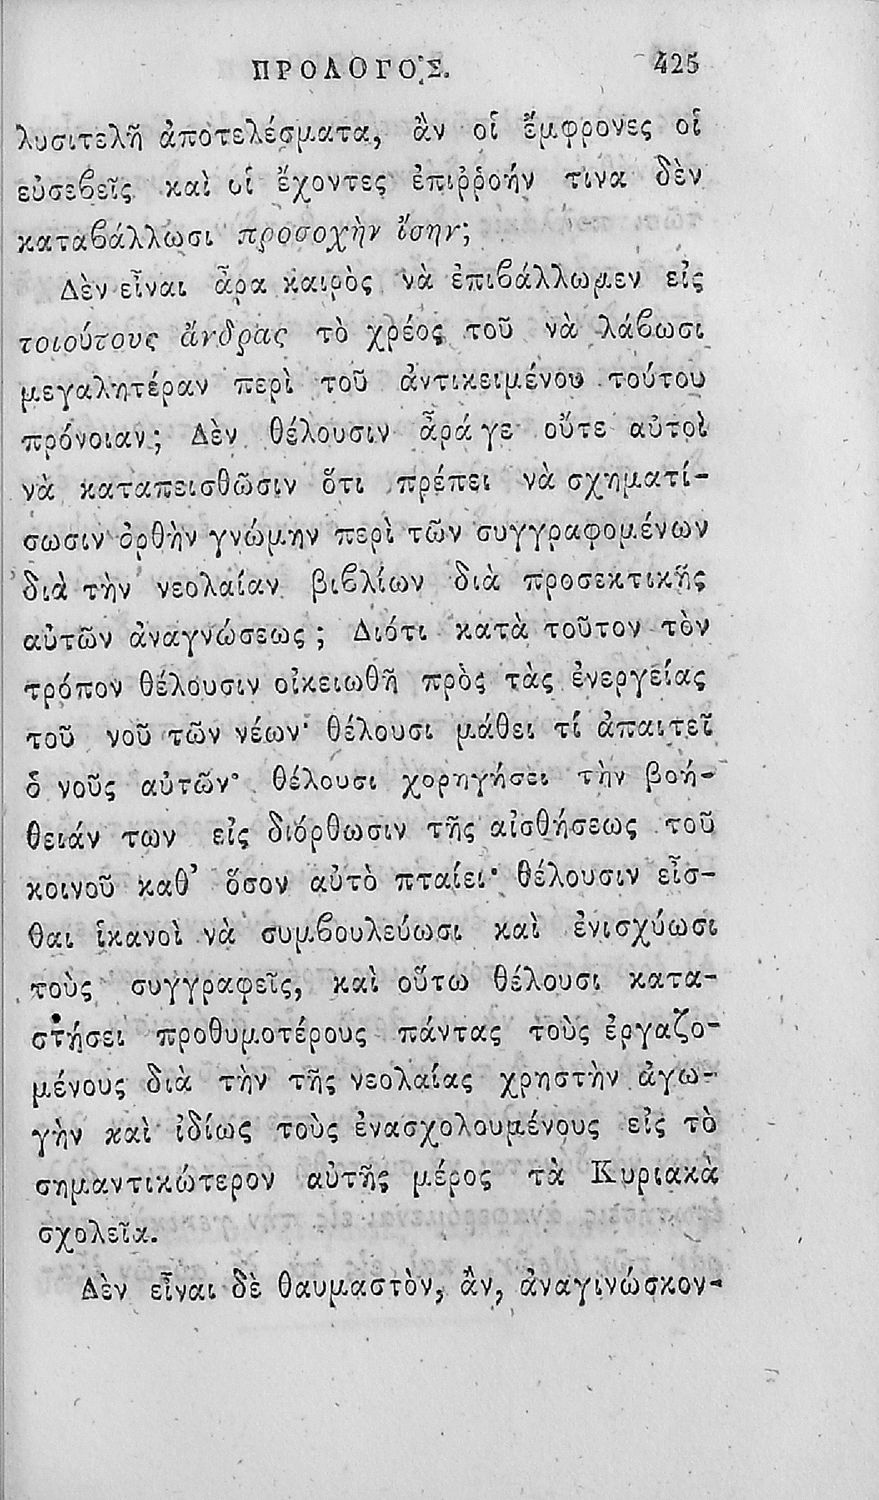 ΠΡΟΛΟΓΟΣ. 425
λυσιτελῆ ἀποτελέσματα, ἂν οἱ ἔμφρονες οἱ
εὐσεβεῖς καὶ οἱ ἔχοντες ἐπιῤῥοήν τινα δὲν
καταβάλλωσι προσοχὴν ἴσην;
Δὲν εἶναι ἆρα καιρὸς νὰ ἐπιβάλλωμεν εἰς
τοιούτους ἄνδρας τὸ χρέος τοῦ νὰ λάβωσι
μεγαλητέραν περὶ τοῦ ἀντικειμένου τούτου
πρόνοιαν; Δὲν θέλουσιν ἆρά γε οὔτε αὐτοὶ
νὰ καταπεισθῶσιν ὅτι πρέπει νὰ σχηματί-
σωσιν ὀρθὴν γνώμην περὶ τῶν συγγραφομένων
διὰ τὴν νεολαίαν βιβλίων διὰ προσεκτικῆς
αὐτῶν ἀναγνώσεως; Διότι κατὰ τοῦτον τὸν
τρόπον θέλουσιν οἰκειωθῆ πρὸς τὰς ἐνεργείας
τοῦ νοῦ τῶν νέων· θέλουσι μάθει τί ἀπαιτεῖ
ὁ νοῦς αὐτῶν· θέλουσι χορηγήσει τὴν βοή-
θειάν των εἰς διόρθωσιν τῆς αἰσθήσεως τοῦ
κοινοῦ καθ’ ὅσον αὐτὸ πταίει· θέλουσιν εἶσ-
θαι ἱκανοὶ νὰ συμβουλεύωσι καὶ ἐνισχύωσι
τοὺς συγγραφεῖς, καὶ οὕτω θέλουσι κατα-
στήσει προθυμοτέρους πάντας τοὺς ἐργαζο-
μένους διὰ τὴν τῆς νεολαίας χρηστὴν ἀγω-
γὴν καὶ ἰδίως τοὺς ἐνασχολουμένους εἰς τὸ
σημαντικώτερον αὐτῆς μέρος τὰ Κυριακὰ
σχολεῖα.
Δὲν εἶναι δὲ θαυμαστὸν, ἂν, ἀναγινώσκον-